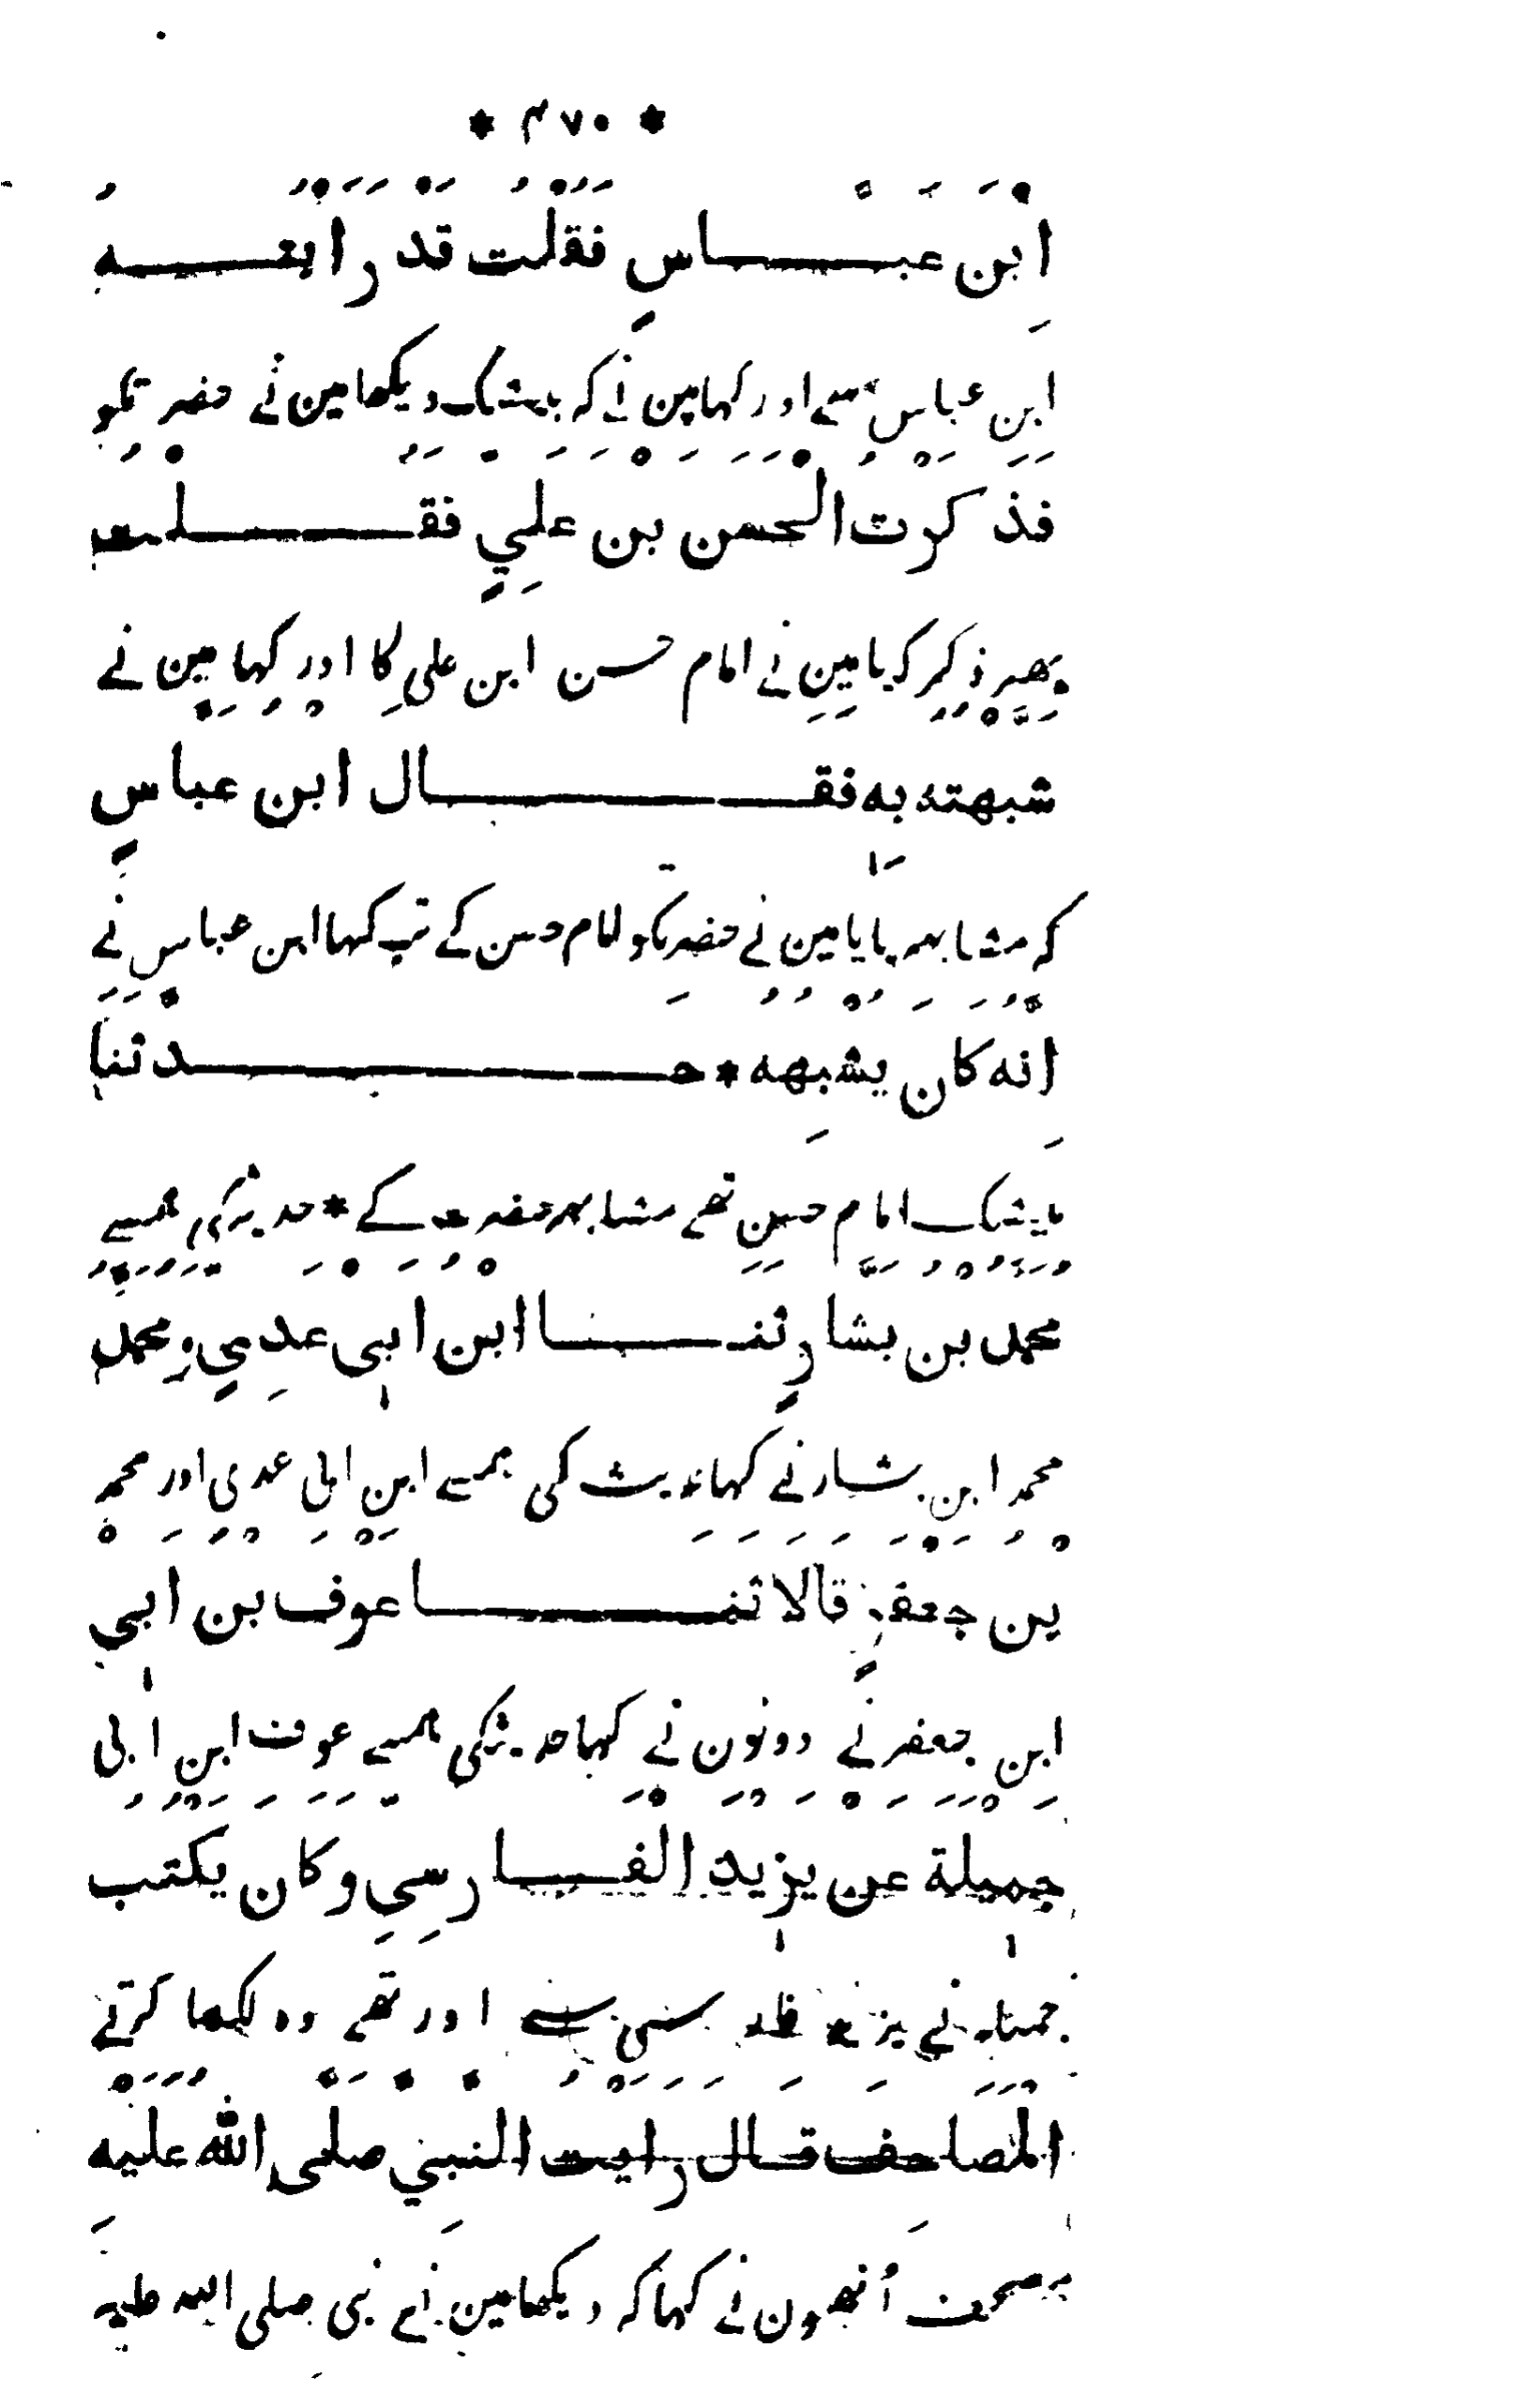 * ۴۷۰ *
ابن عباسٍ فقلت قد رايته
ابن عباس سے اور کہا مین نے کہ بیشک دیکھا مین نے حضرتکو
فذكرت الحسن بن عليٍ فقلت
پھر ذکر کیا مین نے امام حسن ابن علی کا اور کہا مین نے
شبهته به فقال ابن عباسٍ
کہ مشابہہ پایا مین نے حضرتکو امام حسن کے تب کہا ابن عباس نے
انه كان يشبهه * حدثنا
بیشک امام حسن تھے مشابہہ حضرت کے * حدیث کی ہمسے
محمد بن بشارٍ ثنا ابن ابي عديٍ ومحمد
محمد ابن بشار نے کہا حدیث کی ہمسے ابن ابی عدی اور محمد
بن جعفرٍ قالا ثنا عوف بن ابي
ابن جعفر نے دونون نے کہا حدیث کی ہمسے عوف ابن ابی
جميلة عن يزيد الفارسي وكان يكتب
جمیلہ نے یزید فارسی سے اور تھے وہ لکھا کرتے
المصاحف قال رايت النبي صلى الله عليه
مصحف اُنھون نے کہا کہ دیکھا مین نے نبی صلی اللہ علیہ